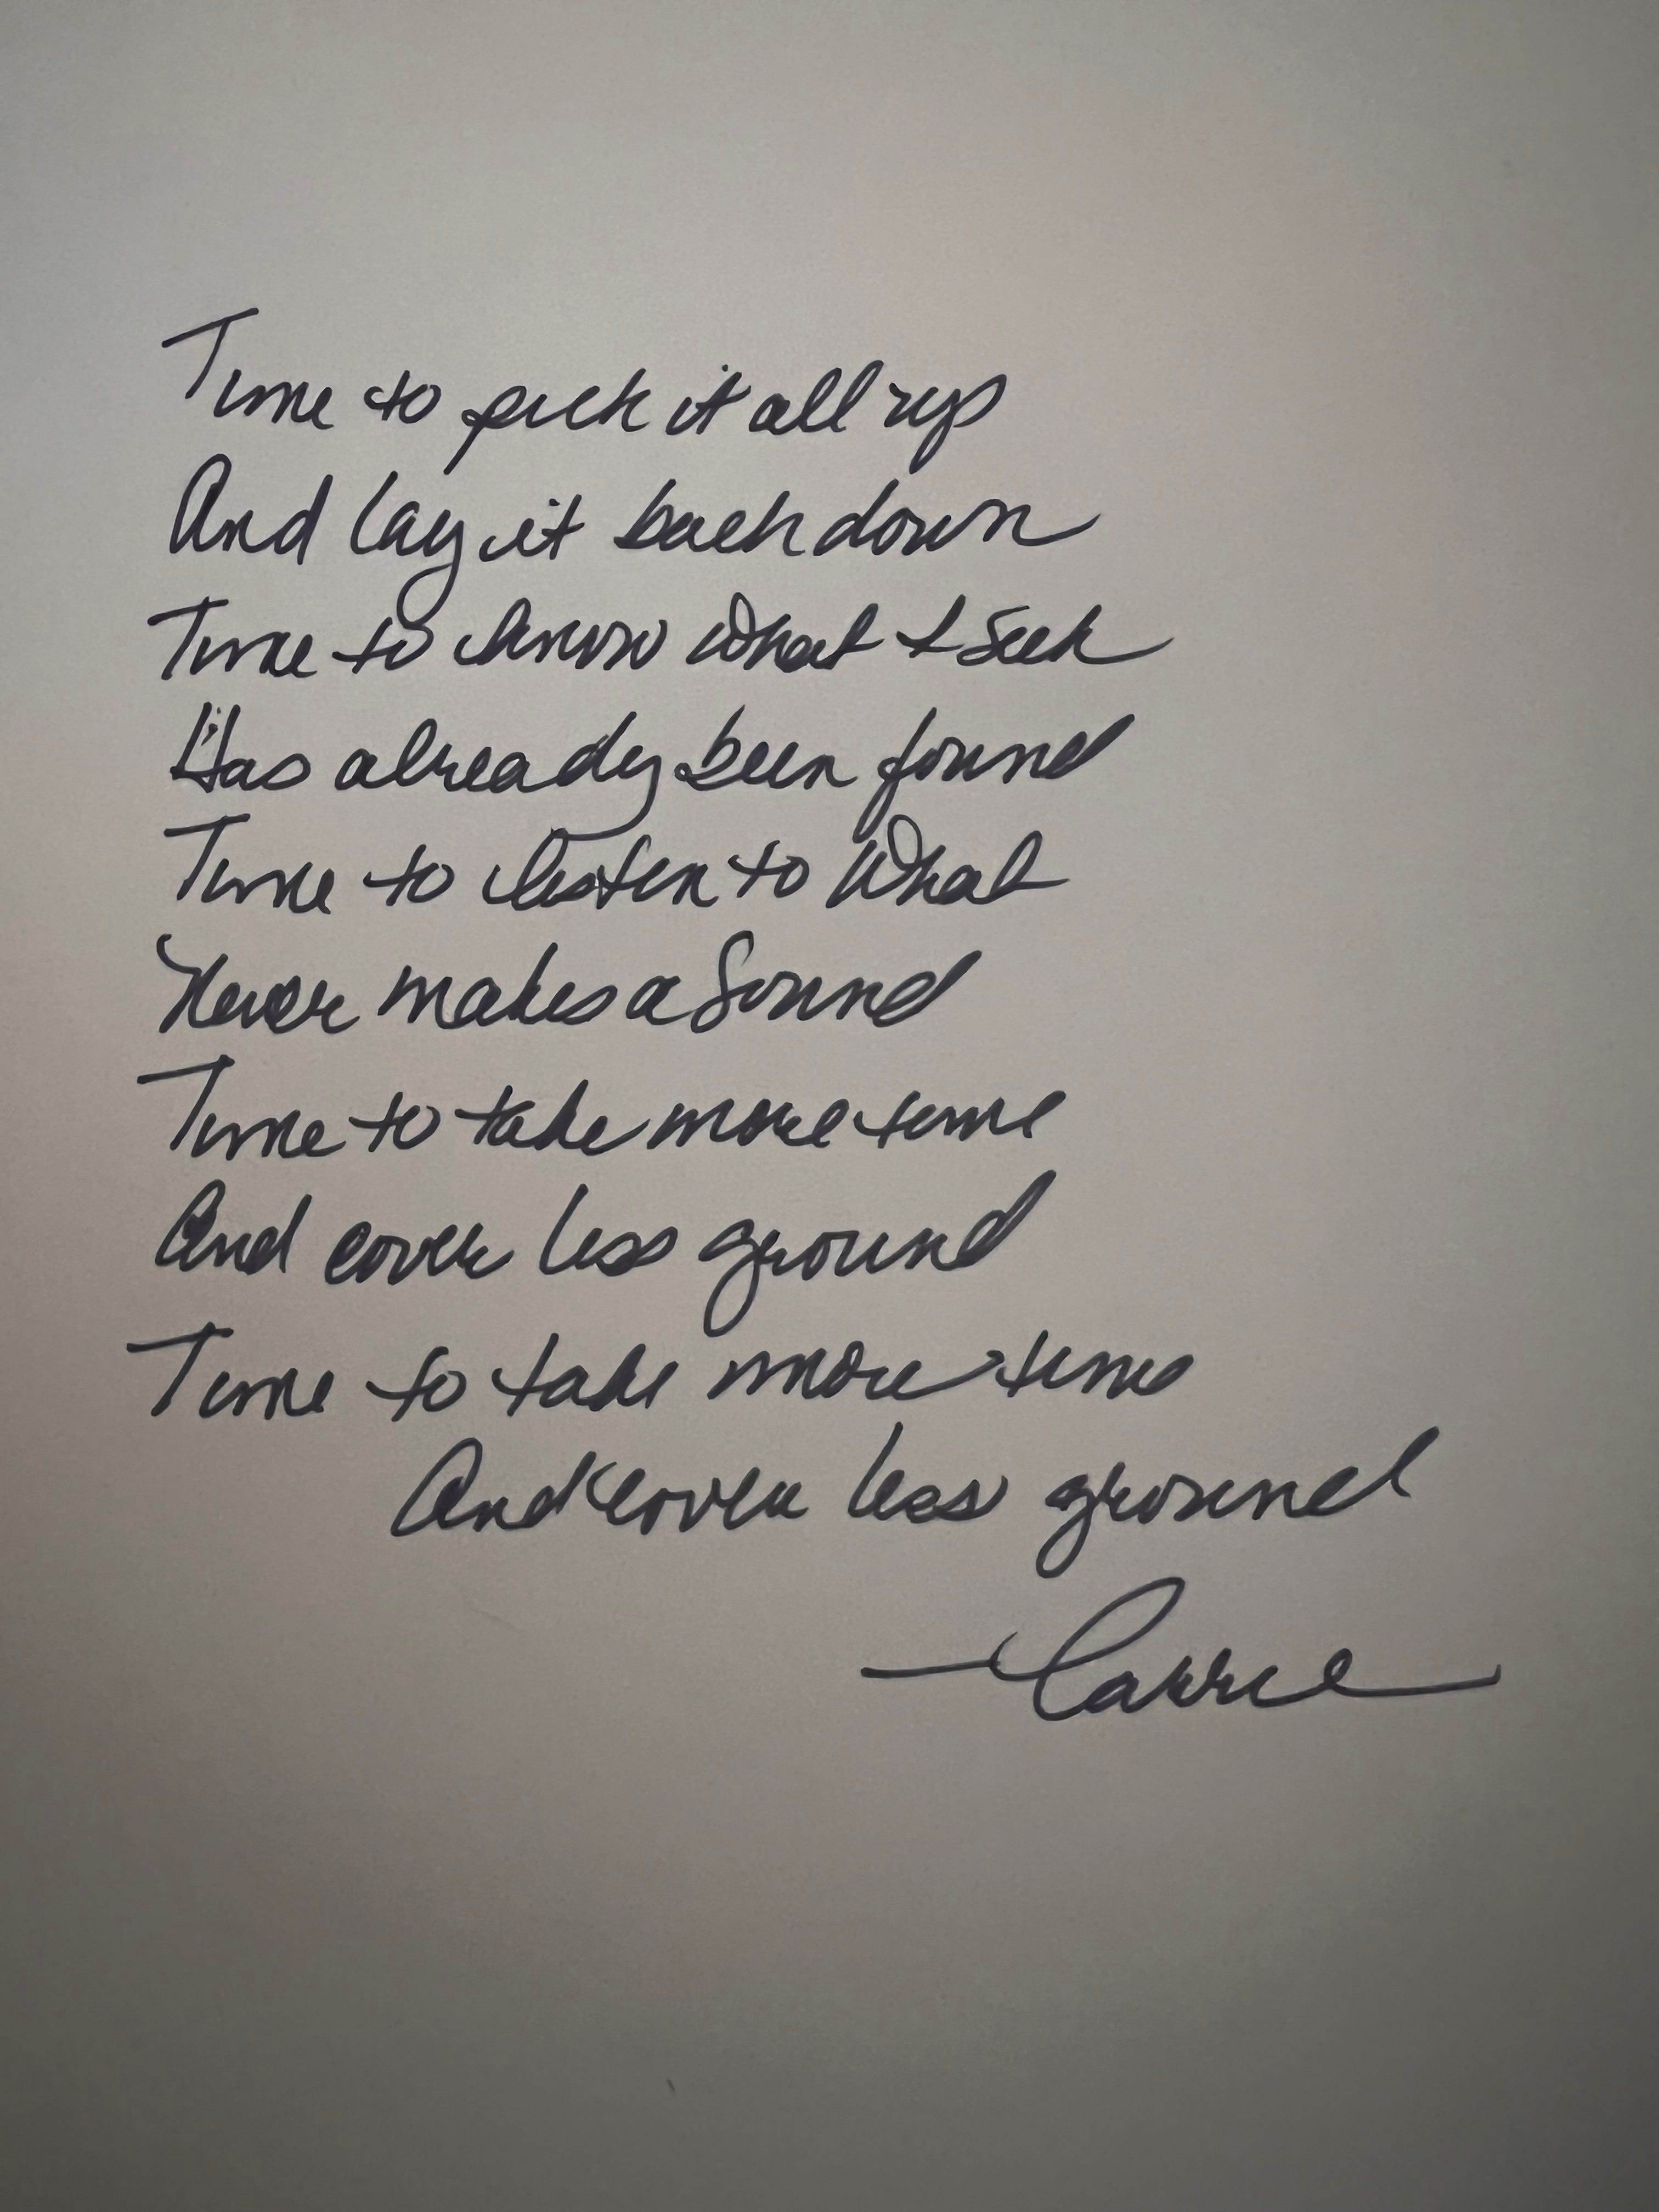 Time to pick it all up
And lay it back down
Time to know what I seek
Has already been found
Time to listen to What
Never makes a Sound
Time to take more time
And cover less ground
Time to take more time
And cover less ground
—Carrie